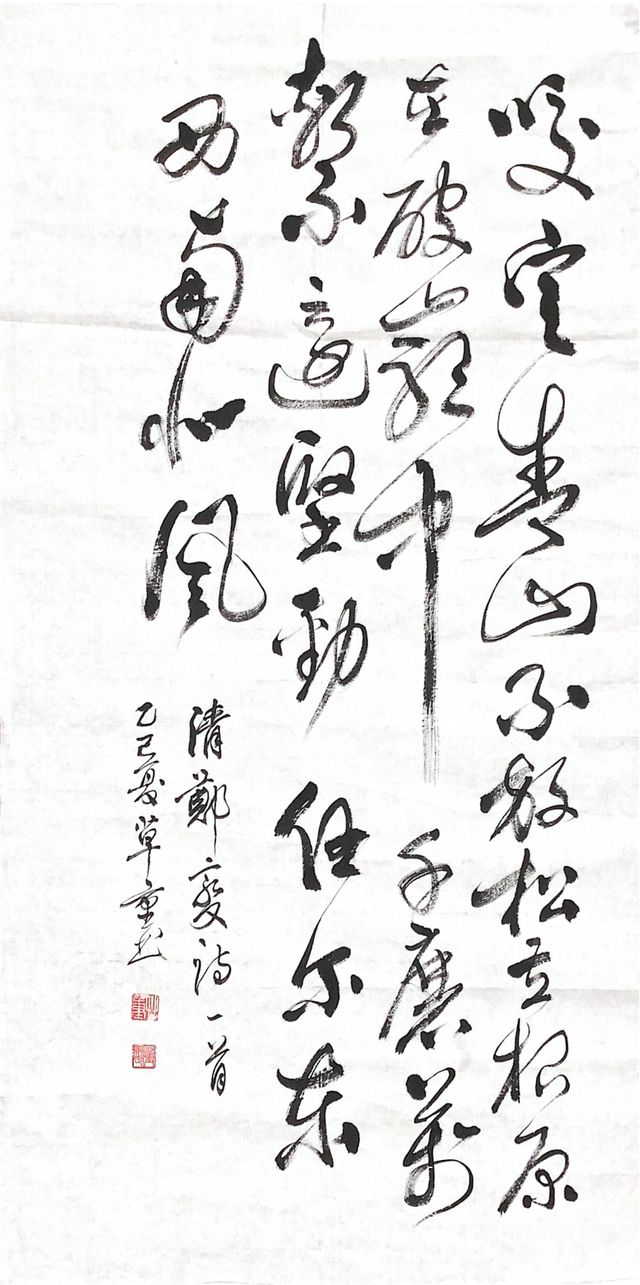 咬定青山不放松立根原
在破巖中千磨萬
擊還堅勁任尔东
西南北風
清鄭燮诗一首
乙巳夏草书